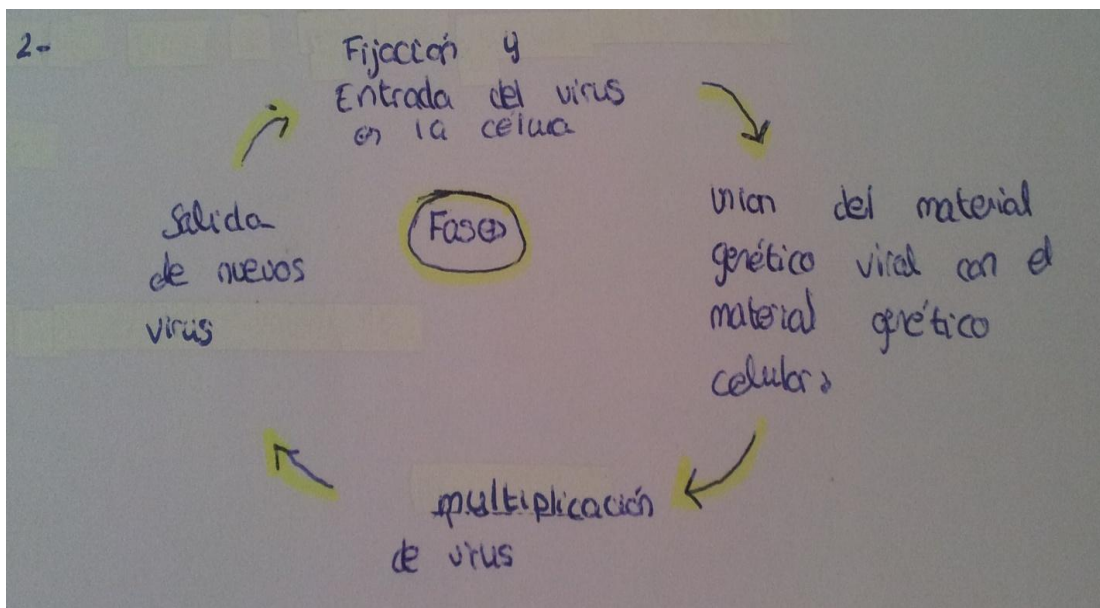 2-
Fijación y
Entrada del virus
en la célula
Unión del material
genético viral con el
material genético
celular.
multiplicación
de virus
Salida
de nuevos
virus
Fases